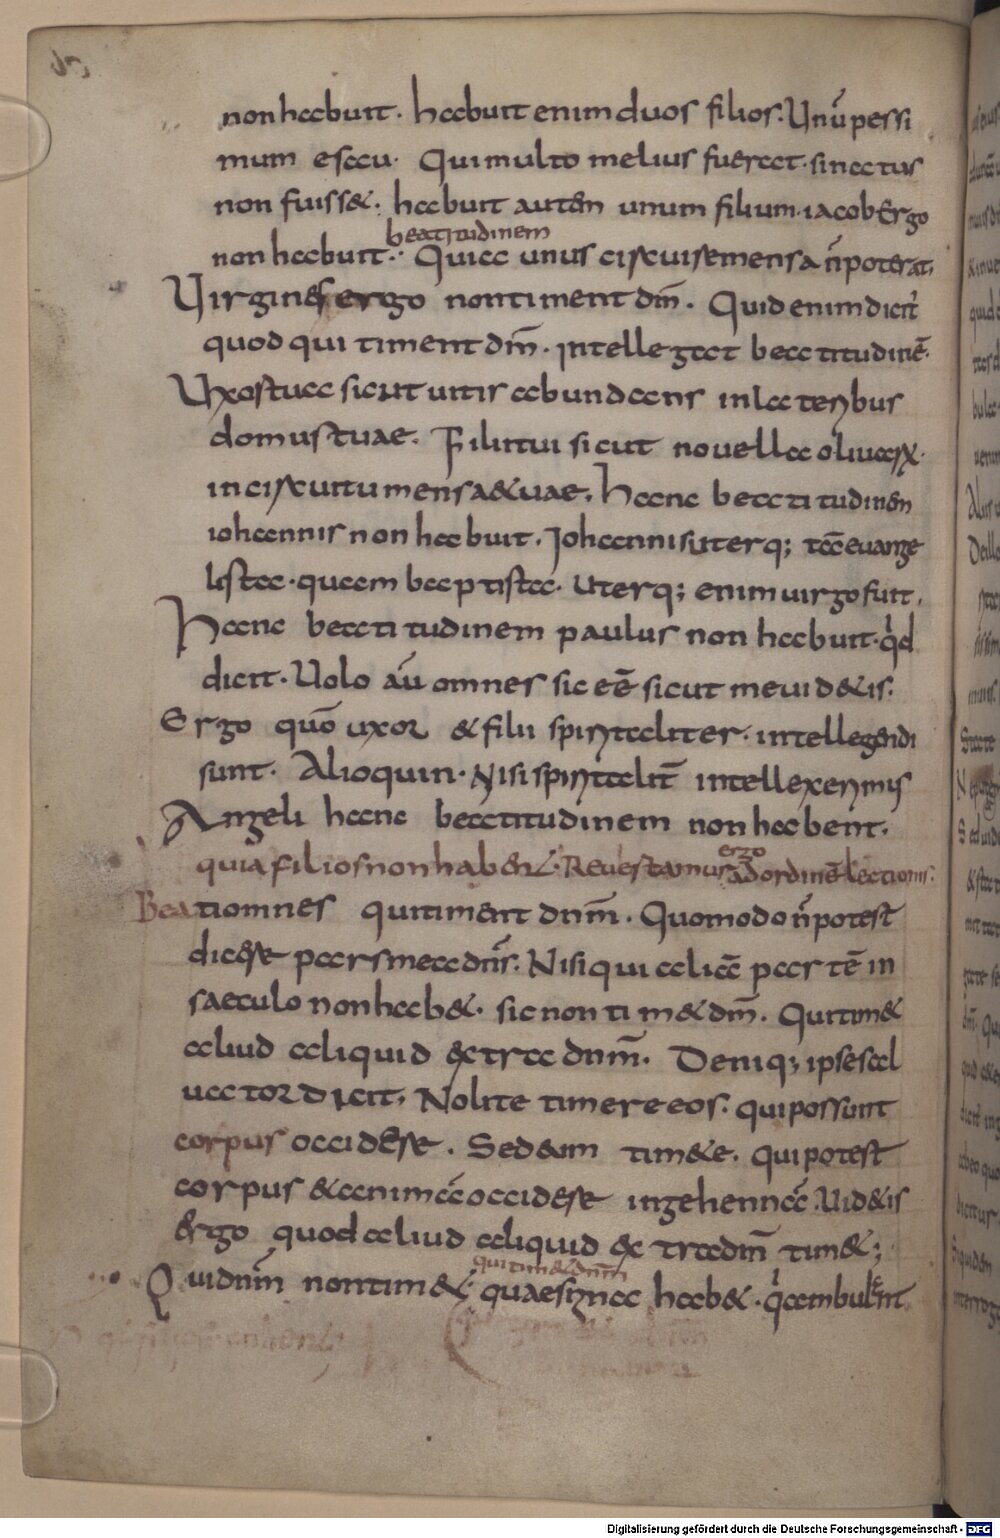 non habuit. habuit enim duos filios. Unū pessi
mum esau. Qui multo melius fuerat. si natus
non fuiss&. habuit autem unum filium. iacob Ergo
beatitudinem
non habuit. Quia unus circuire mensā n̄ poterat.
Virgines ergo non timent dm̄. Quid enim dicit
quod qui timent dm̄. intellegat beatitudinē.
Uxor tua sicut uitis abundans in lateribus
domus tuae. Filii tui sicut nouella oliuarū.
in circuitu mensae tuae. Hanc beatitudinem
iohannis non habuit. Iohannis uterq; tā euange
lista. quam baptista. Uterq; enim uirgo fuit.
Hanc beatitudinem paulus non habuit. qd
dicit. Uolo aū omnes sic eē sicut me uid&is.
Ergo quō uxor & filii spiritaliter. intellegendi
sunt. Alioquin. Nisi spiritalit̄ intellexerimus
Angeli hanc beatitudinem non habent.
quia filios non habent. Reuertamur ergo ad ordinē lectionis.
Beati omnes qui timent dnm̄. Quomodo n̄ potest
dicere pars mea dn̄s. Nisi qui aliā partē in
saeculo non hab&. sic non tim& dm̄. Qui tim&
aliud aliquid extra dnm̄. Deniq; ipse sal
uator dicit. Nolite timere eos. qui possunt
corpus occidere. Sed eum tim&e. qui potest
corpus & animā occidere in gehennā. Uid&is
ergo quod aliud aliquid extra dm̄ tim&;
qui tim& dnm̄
Qui dnm̄ non tim&. quae syna hab&. q̄ ambulent